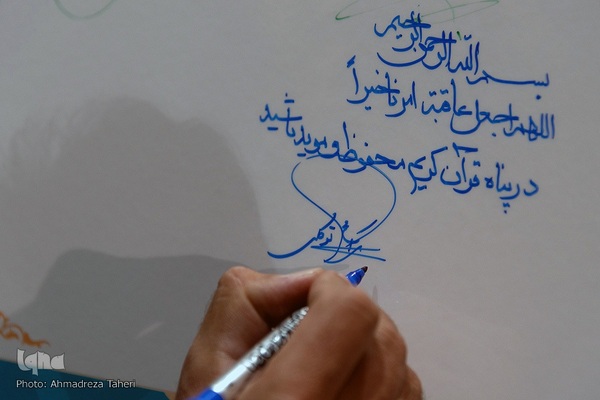 بسم الله الرحمن الرحیم
اللهم اجعل عاقبة امرنا خیراً
در پناه قرآن کریم محفوظ و موید باشید
iqna
Photo: Ahmadreza Taheri